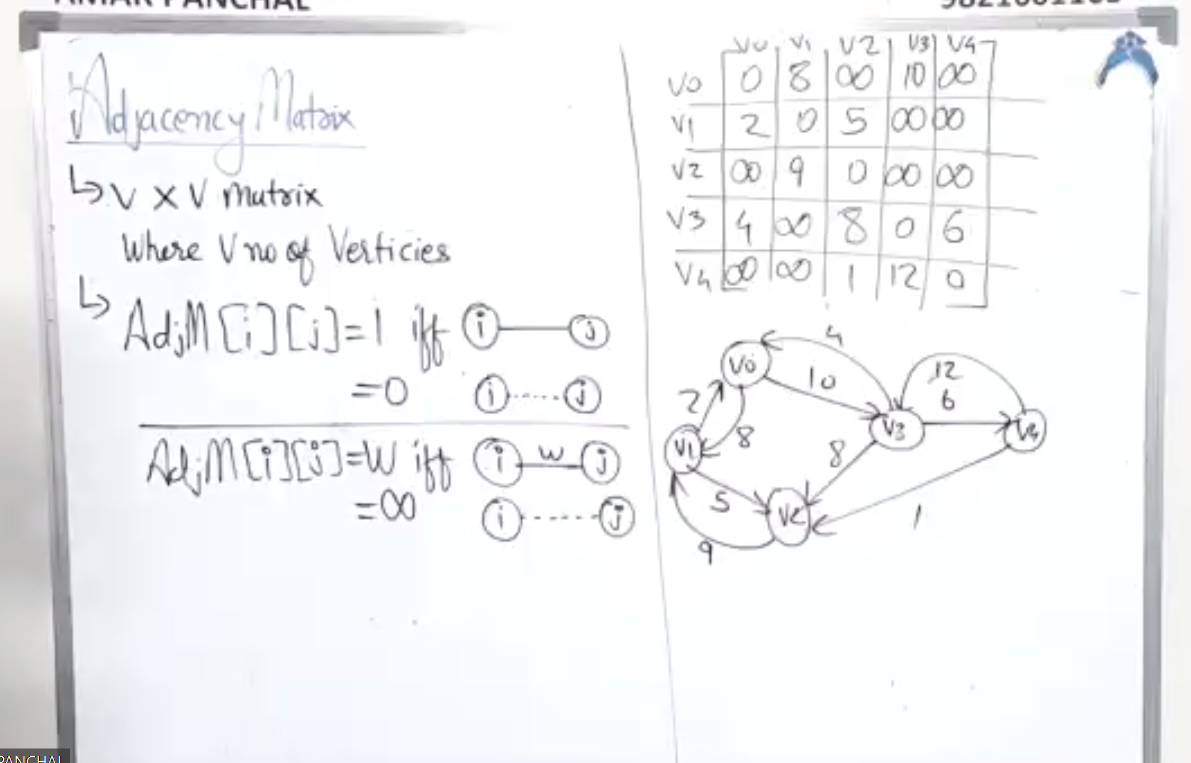 AMAR PANCHAL
Adjacency Matrix
↳ V X V Matrix
Where V no of Verticies
↳ AdjM[i][j]=1 iff i j
=0 i j
AdjM[i][j]=W iff i w j
=∞ i j
V0 V1 V2 V3 V4
V0 0 8 ∞ 10 ∞
V1 2 0 5 ∞ ∞
V2 ∞ 9 0 ∞ ∞
V3 4 ∞ 8 0 6
V4 ∞ ∞ 1 12 0
4
V0 10 12
6
2 8 V3 V4
V1 8
5 V2 1
9
PANCHAL